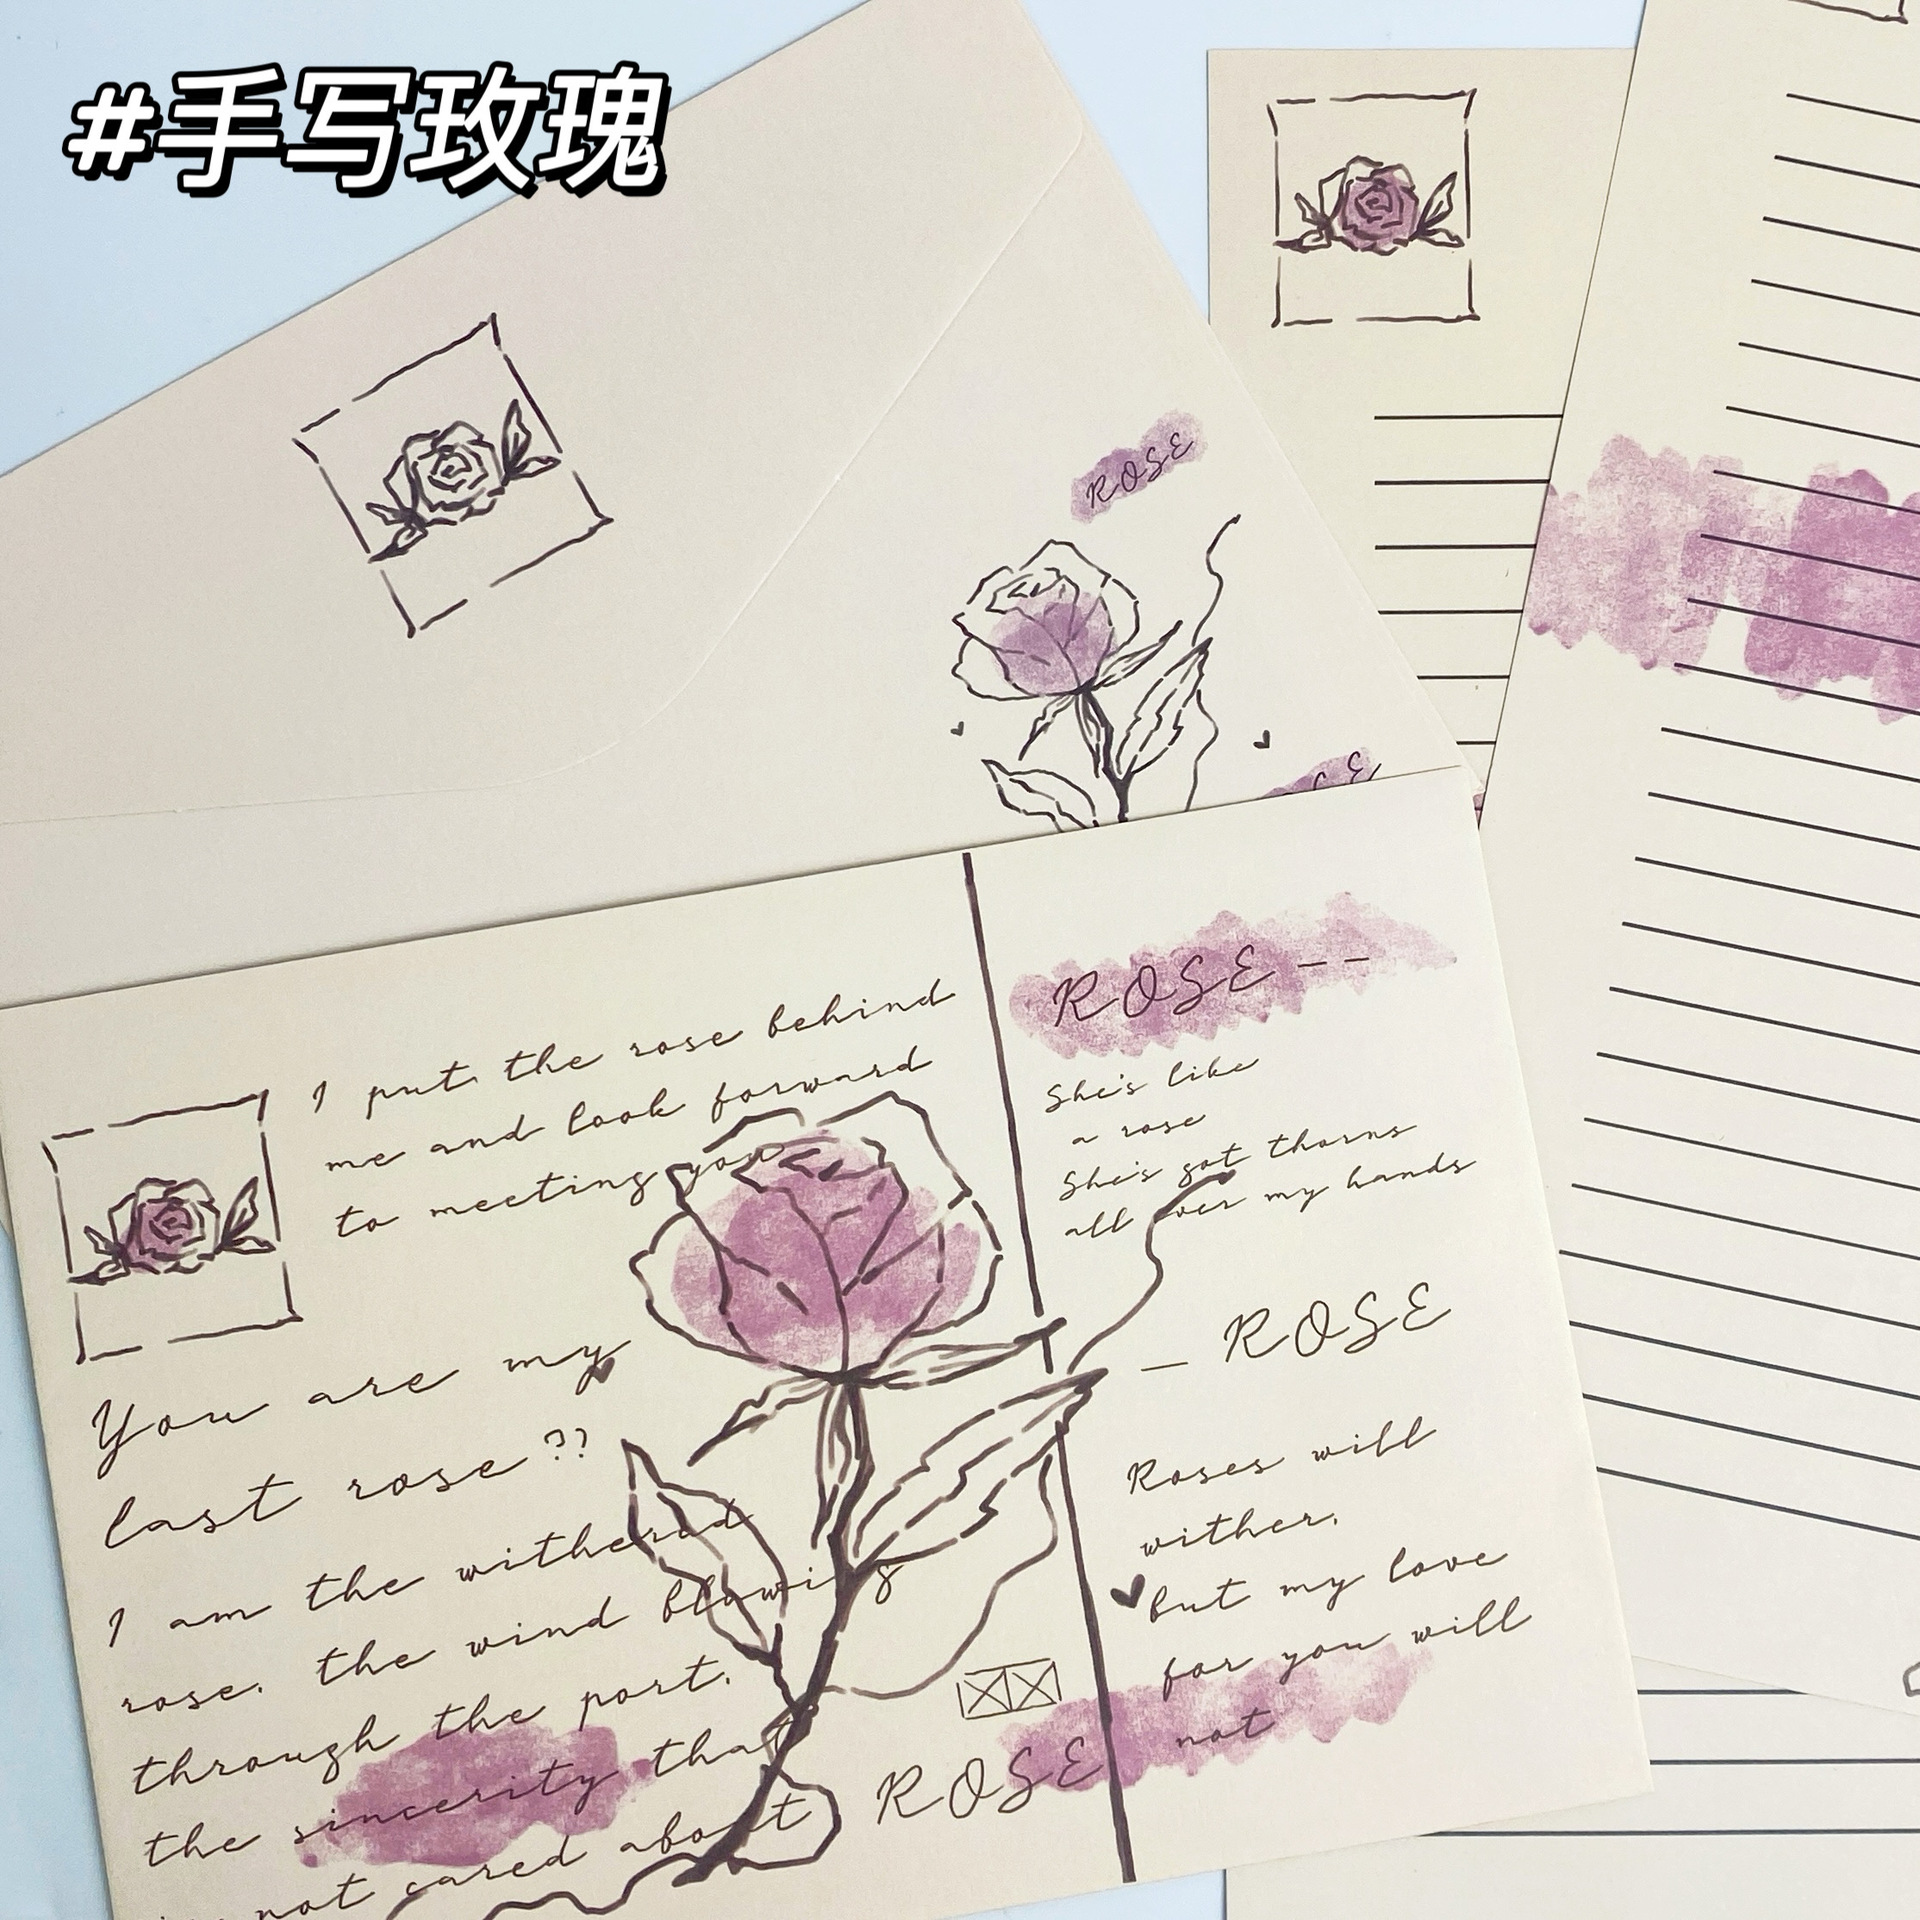 #手写玫瑰
ROSE
I put the rose behind
me and look forward
to meeting you
You are my
last rose??
I am the withered
rose. the wind blowing
through the port.
the sincerity that
not cared about
ROSE--
She's like
a rose
She's got thorns
all over my hands
— ROSE
Roses will
wither.
but my love
for you will
not
ROSE